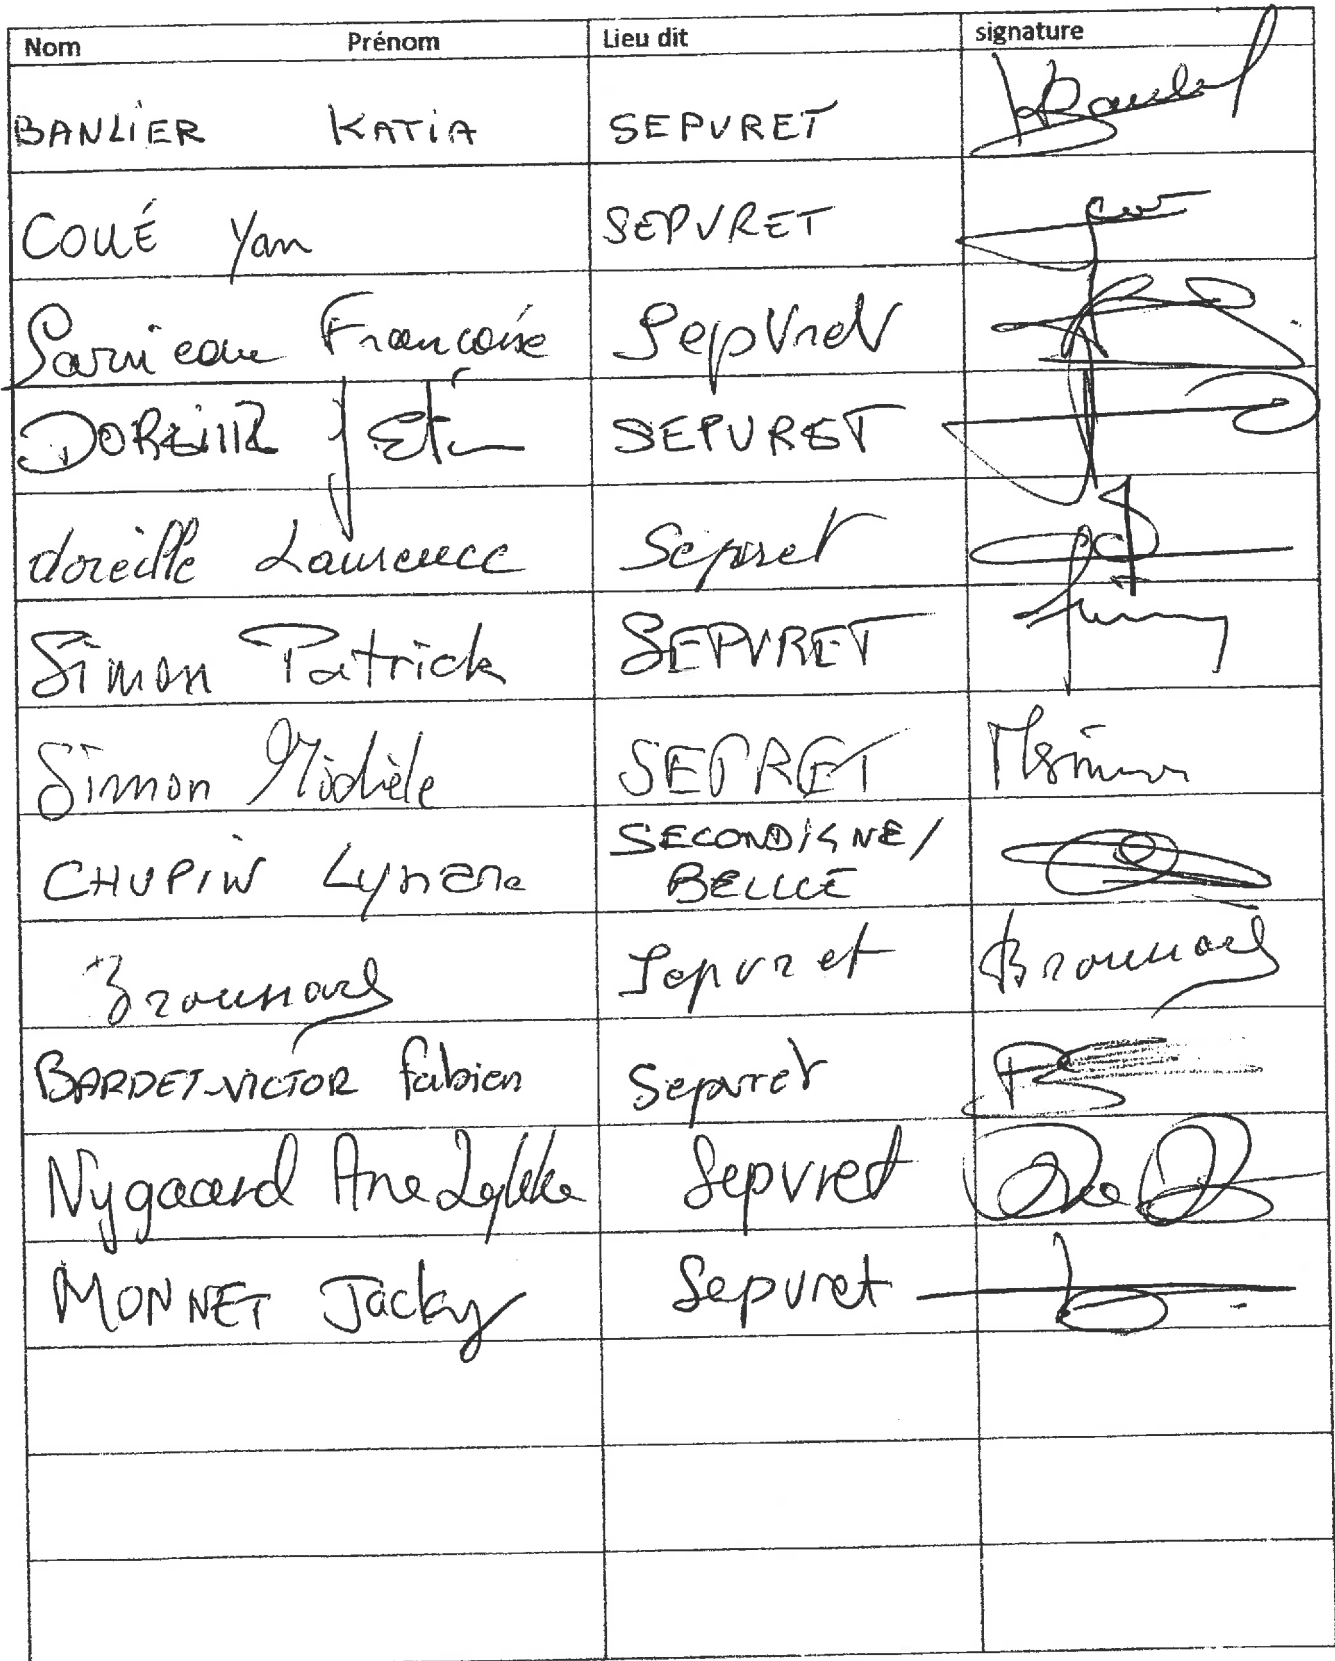 Nom Prénom Lieu dit signature
BANLIER KATIA SEPVRET
COUÉ Yan SEPVRET
Françoise SepVret
SEPVRET
doreille Laurence Sepvret
Simon Patrick SEPVRET
Simon Michèle SEPRET MSimon
CHUPIN SECONDIGNE/
BELLCE
Sepvret
BARDET-VICTOR fabien Sepvret
Nygaard Ane Lykke Sepvret
MONNET Jacky Sepvret